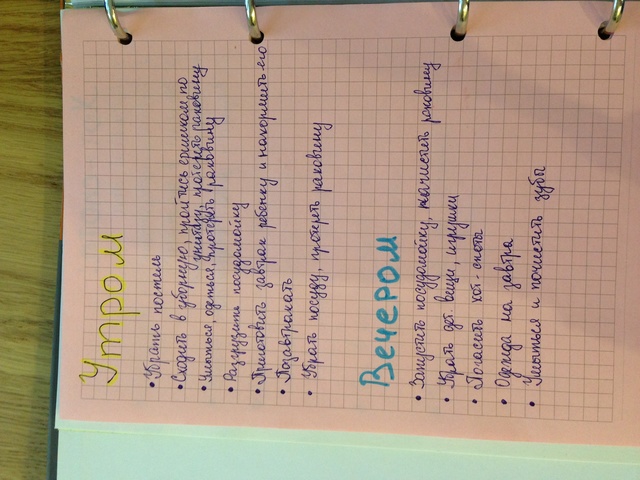 Утром
• Убрать постель
• Сходить в уборную, пройтись ёршиком по
унитазу, протереть раковину
• Умыться, одеться, протереть раковину
• Разгрузить посудомойку
• Приготовить завтрак ребенку и накормить его
• Позавтракать
• Убрать посуду, протереть раковину
Вечером
• Запустить посудомойку, начистить раковину
• Убрать дет вещи, игрушки
• Погасить хот споты
• Одежда на завтра
• Умыться и почистить зубы